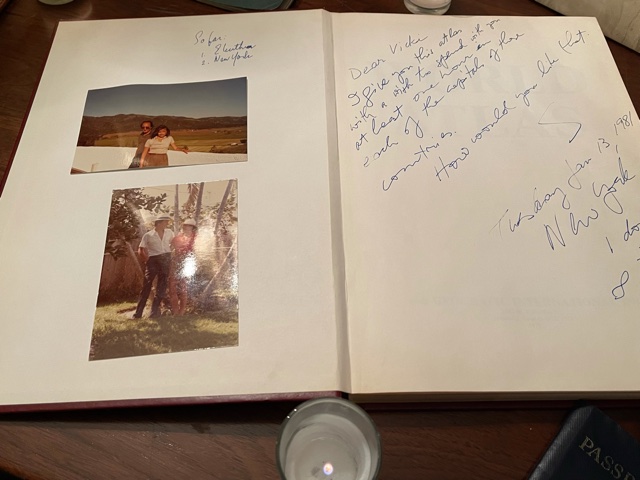 So far:
1. Eleuthra
2. New York
Dear Vicki
I give you this atlas
with a wish to spend with you
at least one hour in
each of the capitals of these
countries.
How would you like that
S
Tuesday Jan 13, 1981
New York
I do
PASS